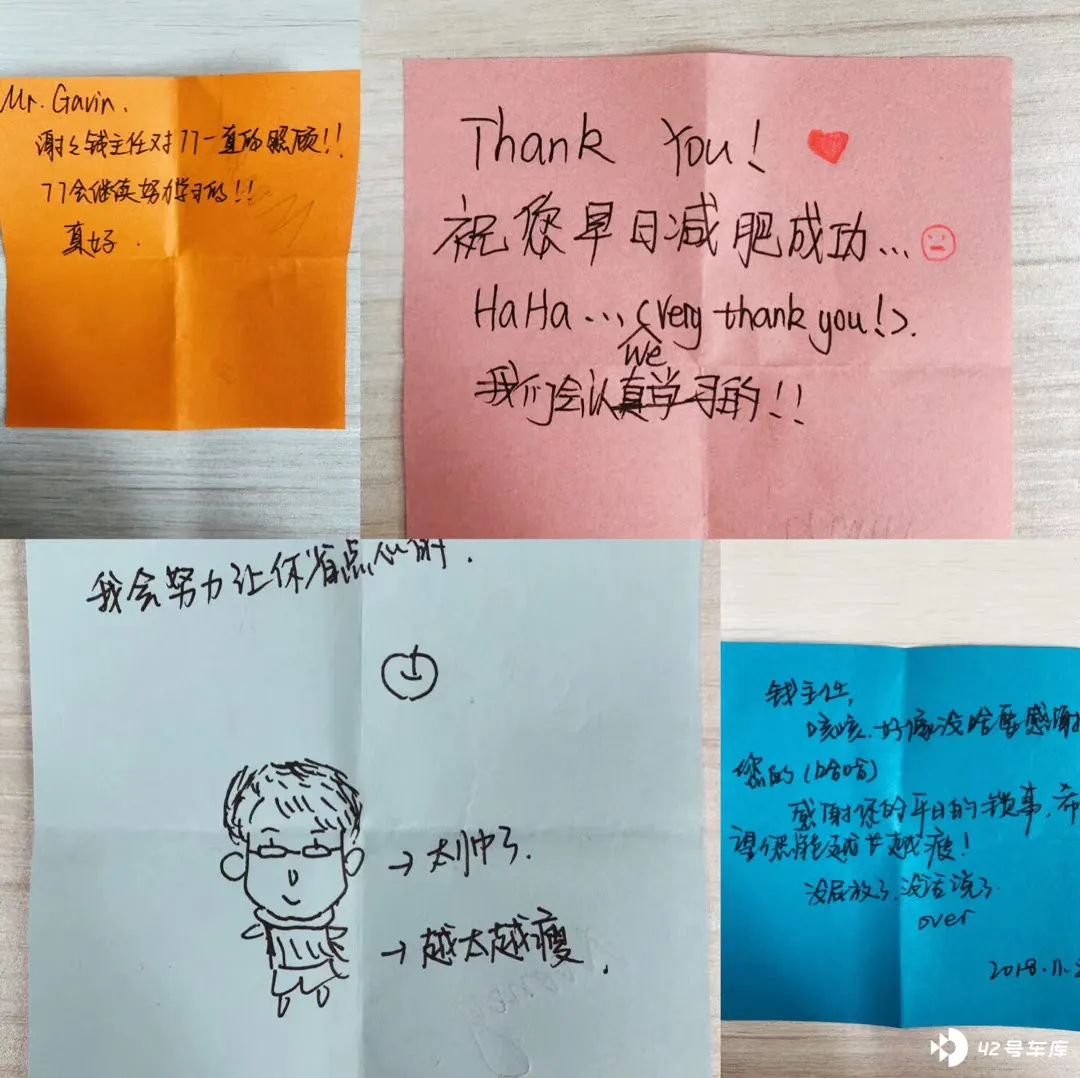 Mr. Gavin.
谢谢钱主任对77一直的照顾!!
77会继续努力学习的!!
真好.
Thank You!
祝您早日减肥成功...
HaHa...(we very thank you!).
我们会认真学习的!!
我会努力让你省点心
→太帅了.
→越大越瘦.
钱主任,
咳咳.好像没啥要感谢
您的(哈哈)
感谢您的平日的锁事,希
望您能越节越瘦!
没屁放了,没话说了
over
2018.11.
42号车库